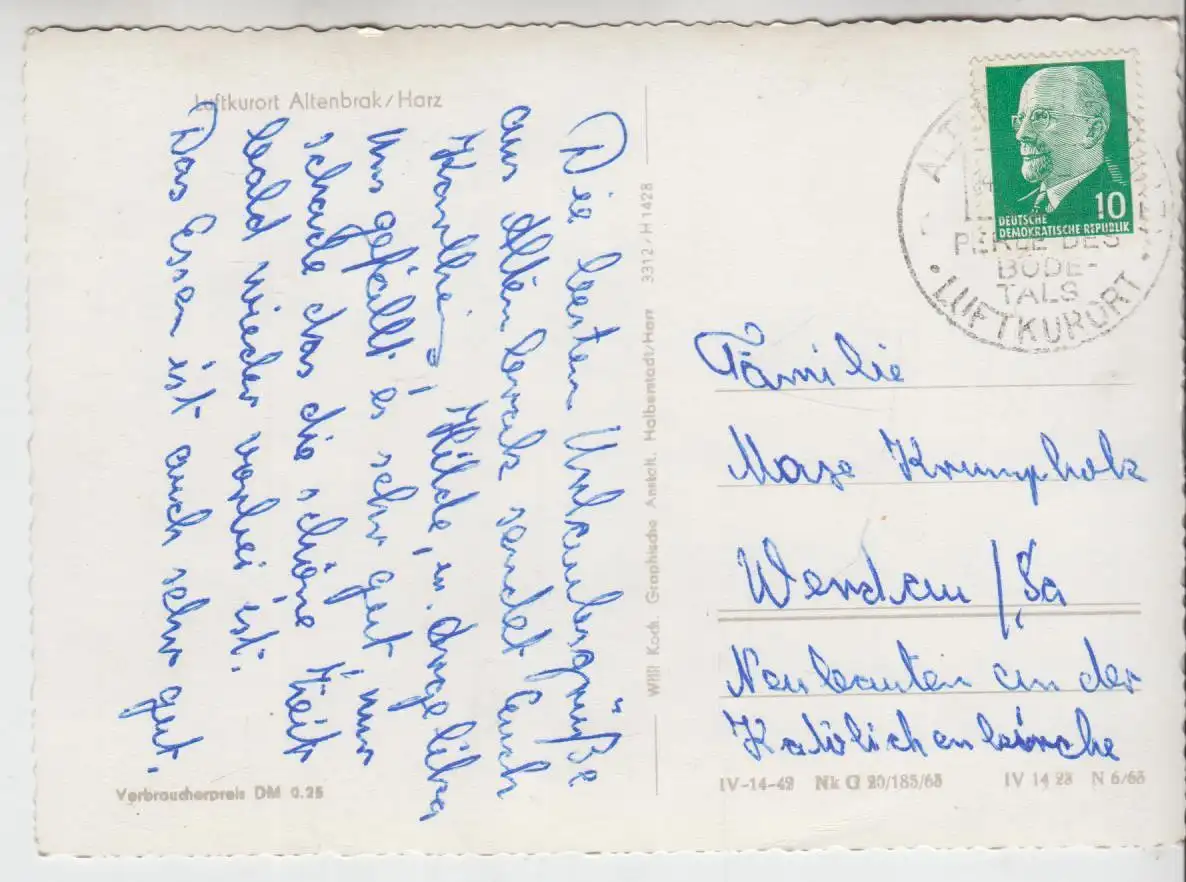 Luftkurort Altenbrak/Harz
Die besten Urlaubsgrüße
aus Altenbrak sendet Euch
Hilde, u. Angelika
uns gefällt es sehr gut, nur
schade das die schöne Zeit
bald wieder vorbei ist.
Das Essen ist auch sehr gut.
Verbraucherpreis DM 0.25
Willi Koch, Graphische Anstalt, Halberstadt/Harz 3312/H 1428
10
DEUTSCHE
DEMOKRATISCHE REPUBLIK
PERLE DES
BODE-
TALS
LUFTKURORT
Familie
Krumpholz
/Sa
Neubauten an der
Katolischenkirche
IV-14-42 Nk G 20/185/65 IV 14 28 N 6/65